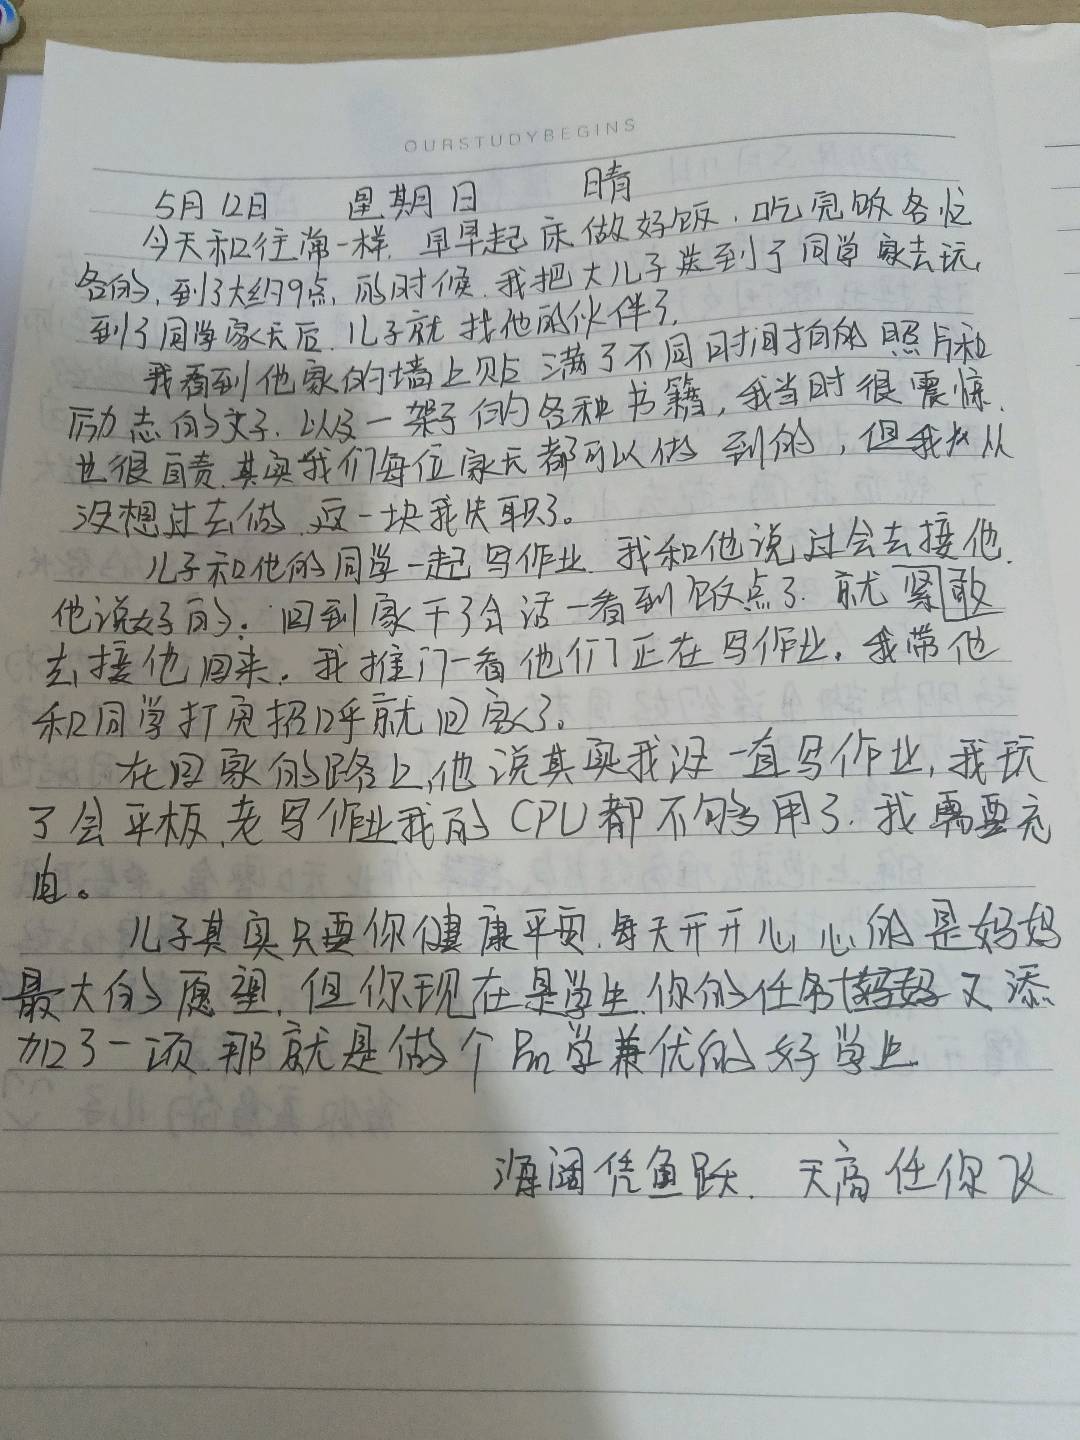 OURSTUDYBEGINS
5月12日 星期日 晴
今天和往常一样,早早起床做好饭,吃完饭各忙
各的,到了大约9点,的时候,我把大儿子送到了同学家去玩,
到了同学家天后,儿子就找他的伙伴了,
我看到他家的墙上贴满了不同时间拍的照片和
励志的文子,以及一架子的各种书籍,我当时很震惊,
也很自责,其实我们每位家长都可以做到的,但我从
没想过去做,这一块我失职了。
儿子和他的同学一起写作业,我和他说过会去接他,
他说好的。回到家干了会活一看到饭点了,就紧敢
去接他回来,我推门一看他们正在写作业,我带他
和同学打完招呼就回家了。
在回家的路上,他说其实我没一直写作业,我玩
了会平板,老写作业我的CPU都不够用了,我需要充
电。
儿子其实只要你健康平安,每天开开心心的是妈妈
最大的愿望,但你现在是学生,你的任务妈妈又添
加了一项,那就是做个品学兼优的好学生
海阔凭鱼跃,天高任你飞